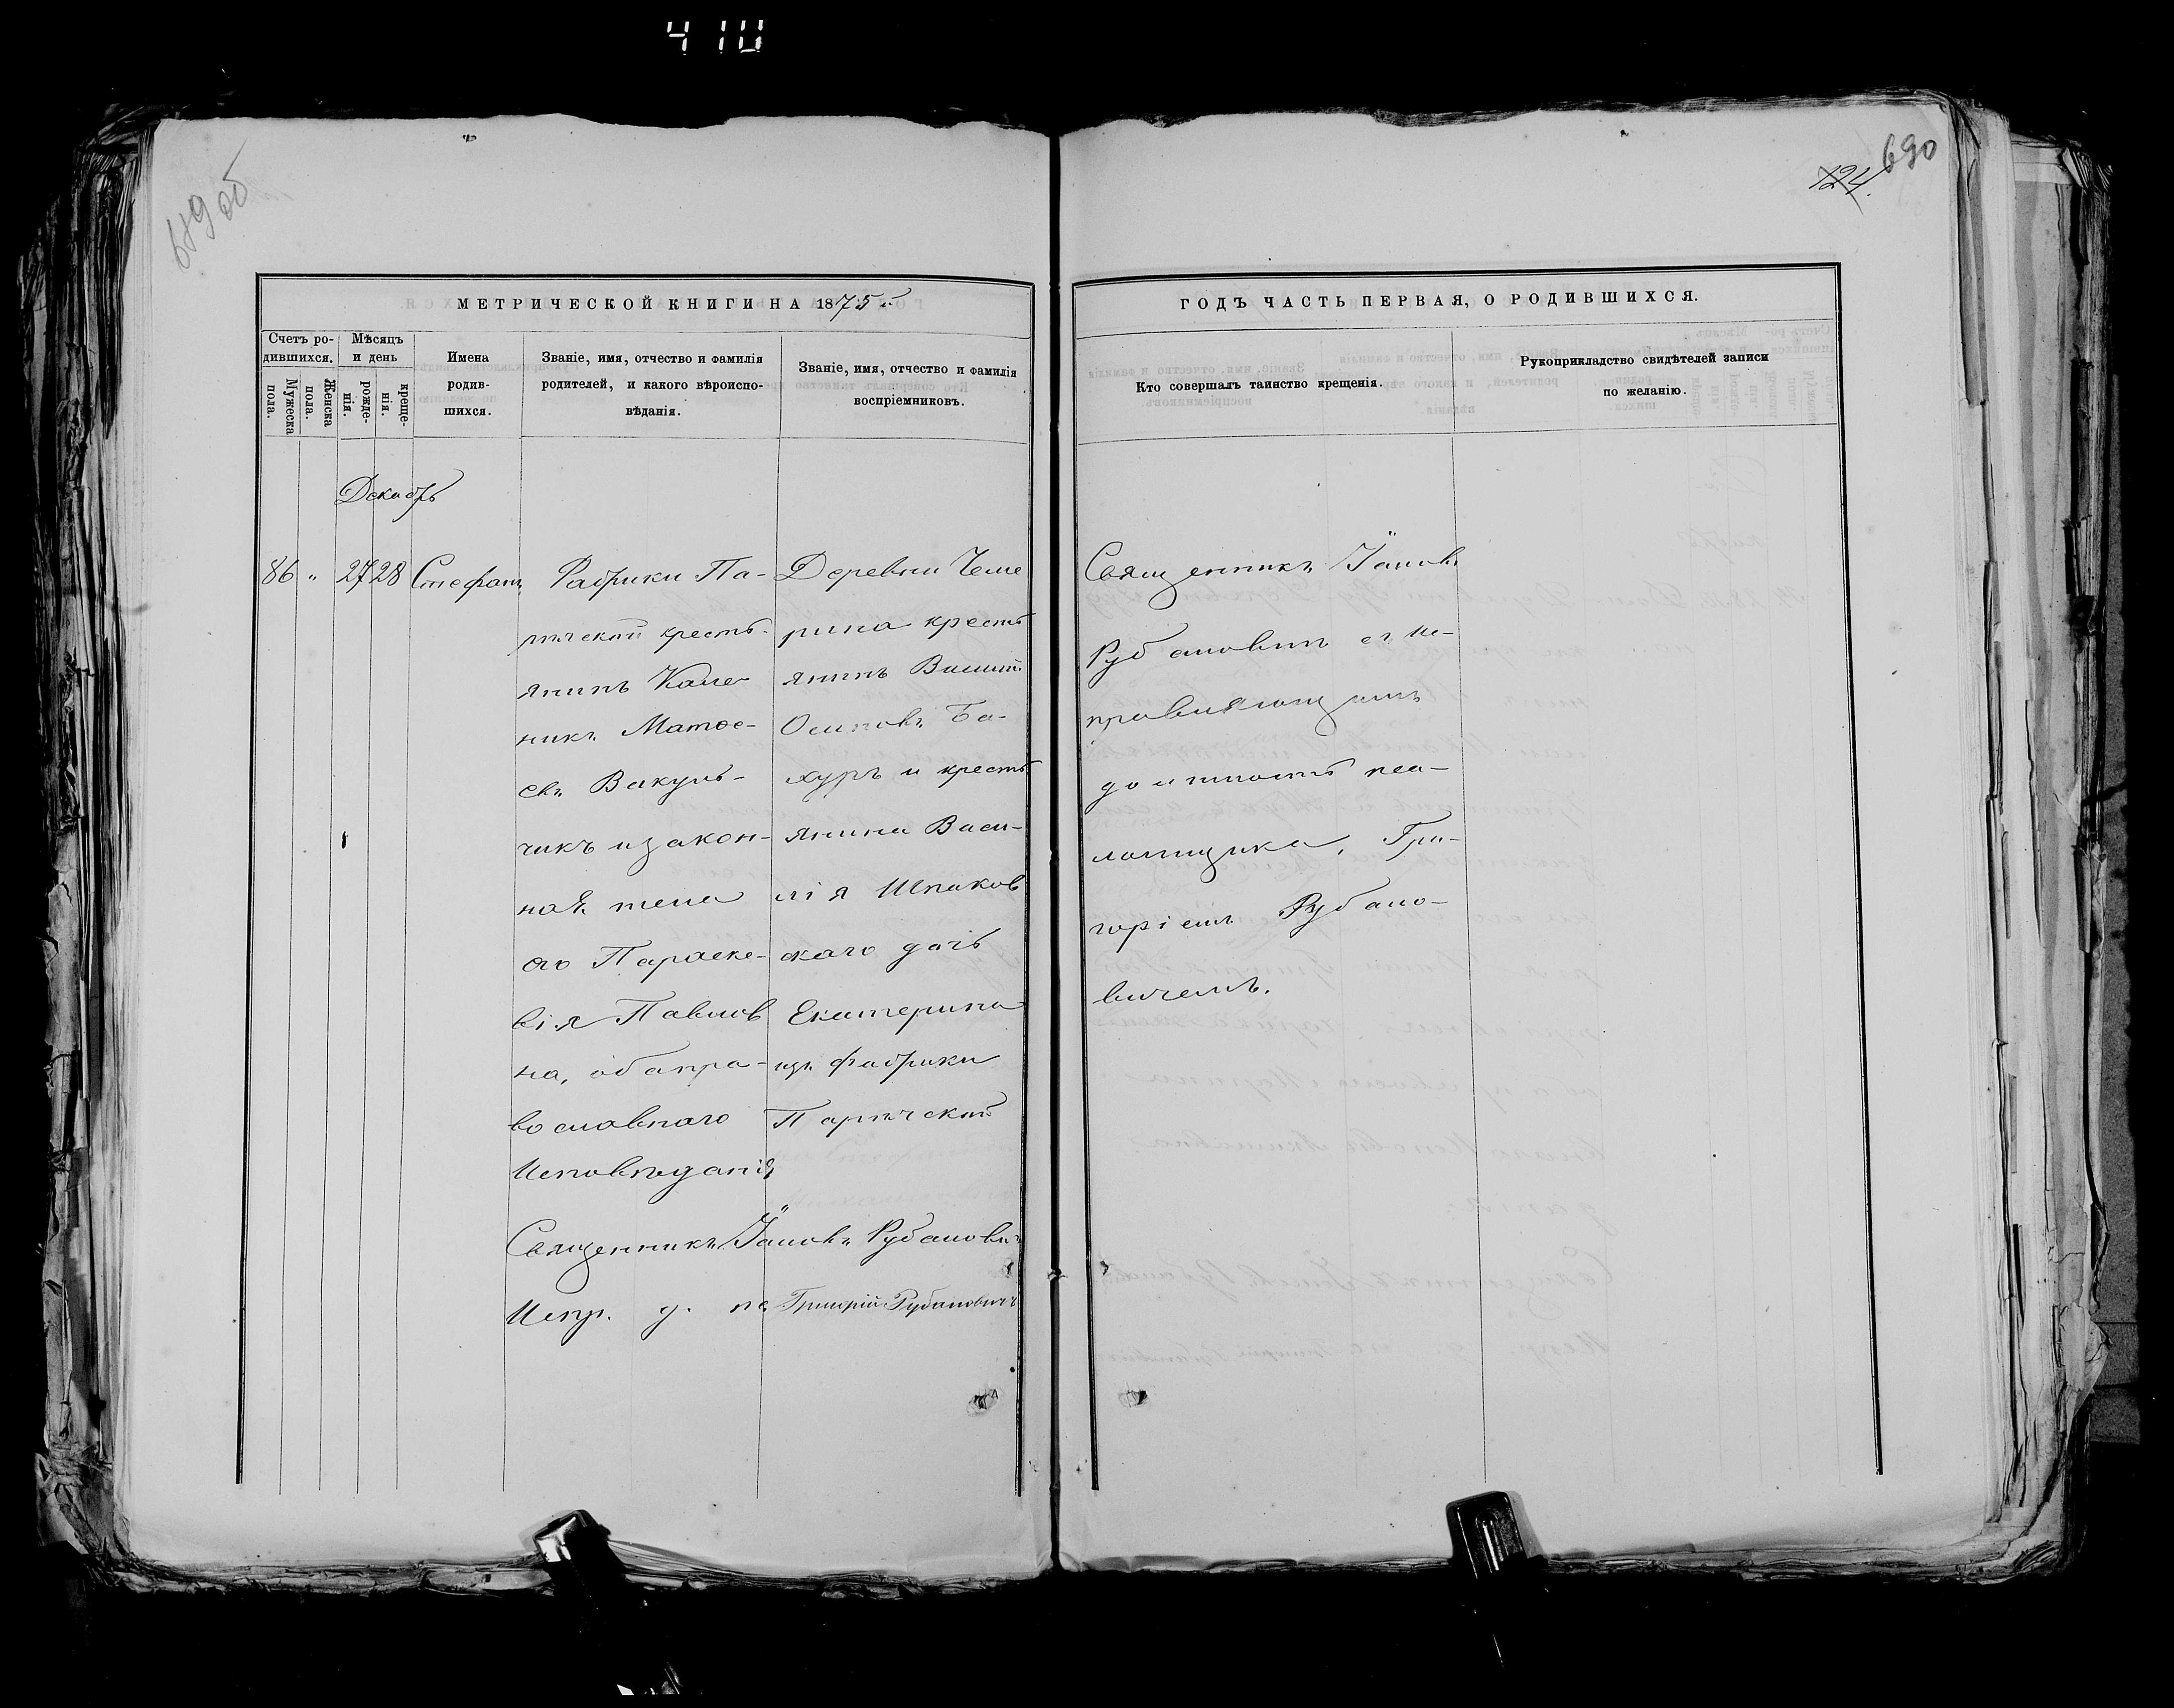 410
689 об
124.
690
МЕТРИЧЕСКОЙ КНИГИ НА 1875 й
ГОДЪ ЧАСТЬ ПЕРВАЯ, О РОДИВШИХСЯ.
Счетъ ро-
дившихся.
Мужеска
пола.
Женска
пола.
Мѣсяцъ
и день
рожде-
нія.
креще-
нія.
Имена
родив-
шихся.
Званіе, имя, отчество и фамилія
родителей, и какого вѣроиспо-
вѣданія.
Званіе, имя, отчество и фамилія
воспріемниковъ.
Кто совершалъ таинство крещенія.
Рукоприкладство свидѣтелей записи
по желанію.
Декабрь
86 „ 27 28 Стефанъ
Фабрики Па-
ричской кресть-
янинъ
никъ Матѳе-
евъ Вакуль-
чикъ и закон-
ная жена
его Параске-
вія Павлов
на, оба пра-
вославнаго
Исповѣданія
Деревни Чеме
рина кресть
янинъ
Осиповъ Ба-
хуръ и кресть
янина Васи-
лія Шпаков
скаго дочь
Екатерина
изъ фабрики
Паричской
Священникъ Іаковъ Рубанови
Испр. д. пс. Григорій Рубановичъ
Священникъ Іаковъ
Рубановичъ съ ис-
правляющимъ
должность пса-
ломщика, Гри-
горіемъ Рубано-
вичемъ.